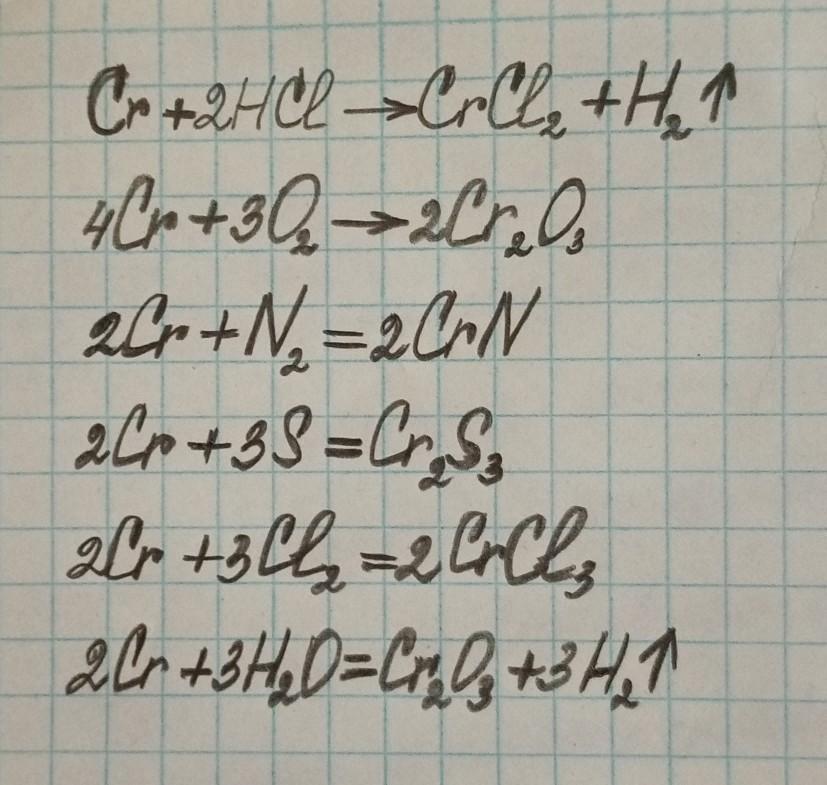 Cr + 2HCl → CrCl₂ + H₂↑
4Cr + 3O₂ → 2Cr₂O₃
2Cr + N₂ = 2CrN
2Cr + 3S = Cr₂S₃
2Cr + 3Cl₂ = 2CrCl₃
2Cr + 3H₂O = Cr₂O₃ + 3H₂↑